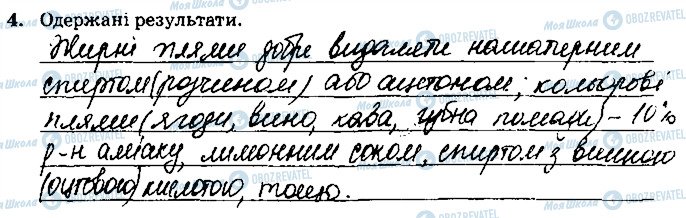 4. Одержані результати.
Жирні плями добре видаляти нашатирним
спиртом (розчином) або ацетоном; кольорові
плями (ягоди, вино, кава, губна помада) – 10%
р-н аміаку, лимонним соком, спиртом з винною
(оцтовою) кислотою, тощо.